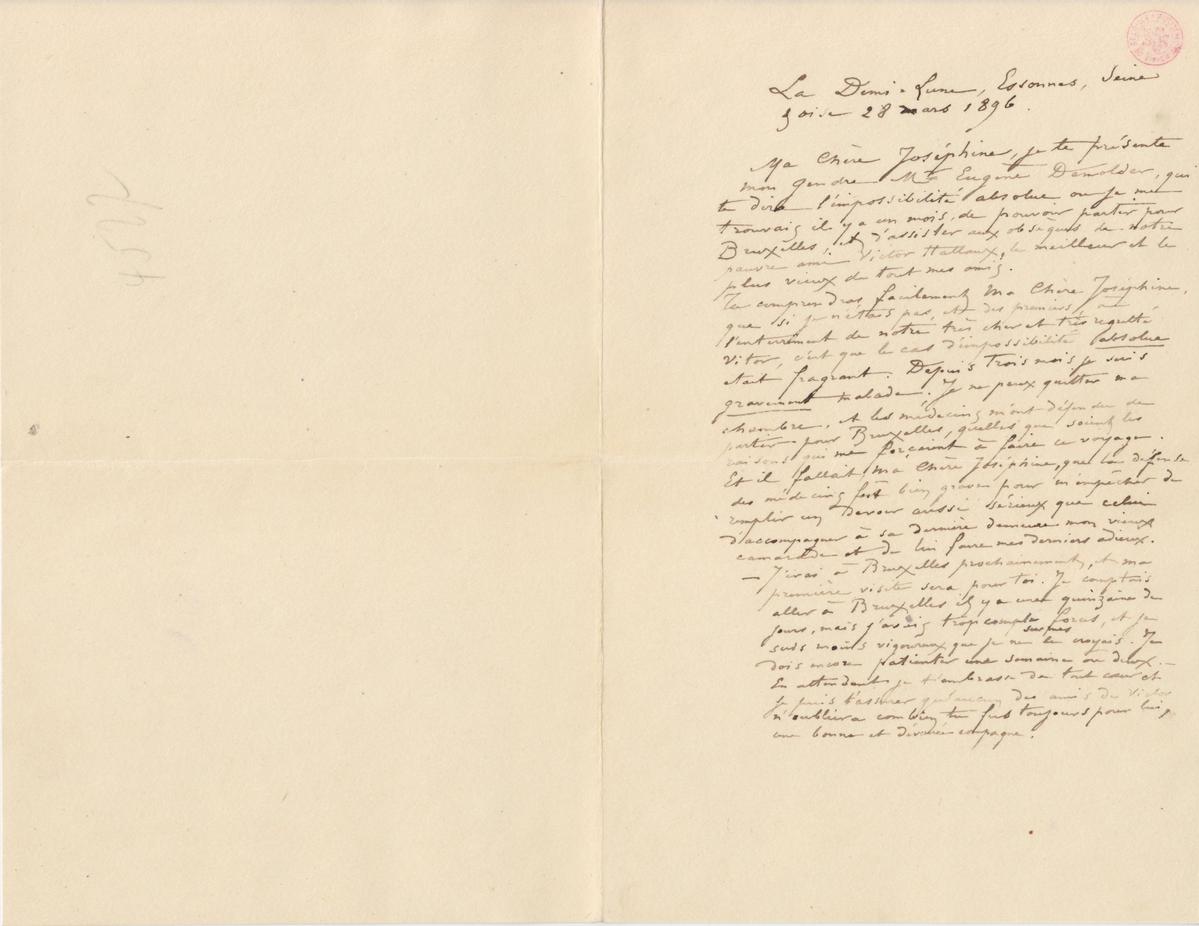 La Demi-Lune, Essonnes, Seine
& Oise 28 mars 1896.
Ma Chère Joséphine, je te présente
mon gendre Mr Eugène Demolder, qui
te dira l'impossibilité absolue ou je me
trouvais il y a un mois, de pouvoir partir pour
Bruxelles, et d'assister aux obsèques de notre
pauvre ami Victor Hallaux, le meilleur et le
plus vieux de tout mes amis.
Tu comprendras facilement Ma Chère Joséphine,
que si je n'étais pas, et des premiers, à
l'enterrement de notre très cher et très regretté
Victor, c'est que le cas d'impossibilité absolue
était flagrant. Depuis trois mois je suis
gravement malade. Je ne peux quitter ma
chambre, et les médecins m'ont défendu de
partir pour Bruxelles, quelles que soient les
raisons qui me forçaient à faire ce voyage.
Et il fallait Ma Chère Joséphine, que la défense
des médecins fut bien grave pour m'empêcher de
remplir un devoir aussi sérieux que celui
d'accompagner à sa dernière demeure mon vieux
camarade et de lui faire mes derniers adieux.
— J'irai à Bruxelles prochainement, et ma
première visite sera pour toi. Je comptais
aller à Bruxelles il y a une quinzaine de
jours, mais j'avais trop compté sur mes forces, et je
suis moins vigoureux que je ne le croyais. Je
dois encore patienter une semaine ou deux. —
En attendant je t'embrasse de tout cœur et
je puis t'assurer qu'aucun des amis de Victor
n'oubliera combien tu fus toujours pour lui,
une bonne et dévouée compagne.